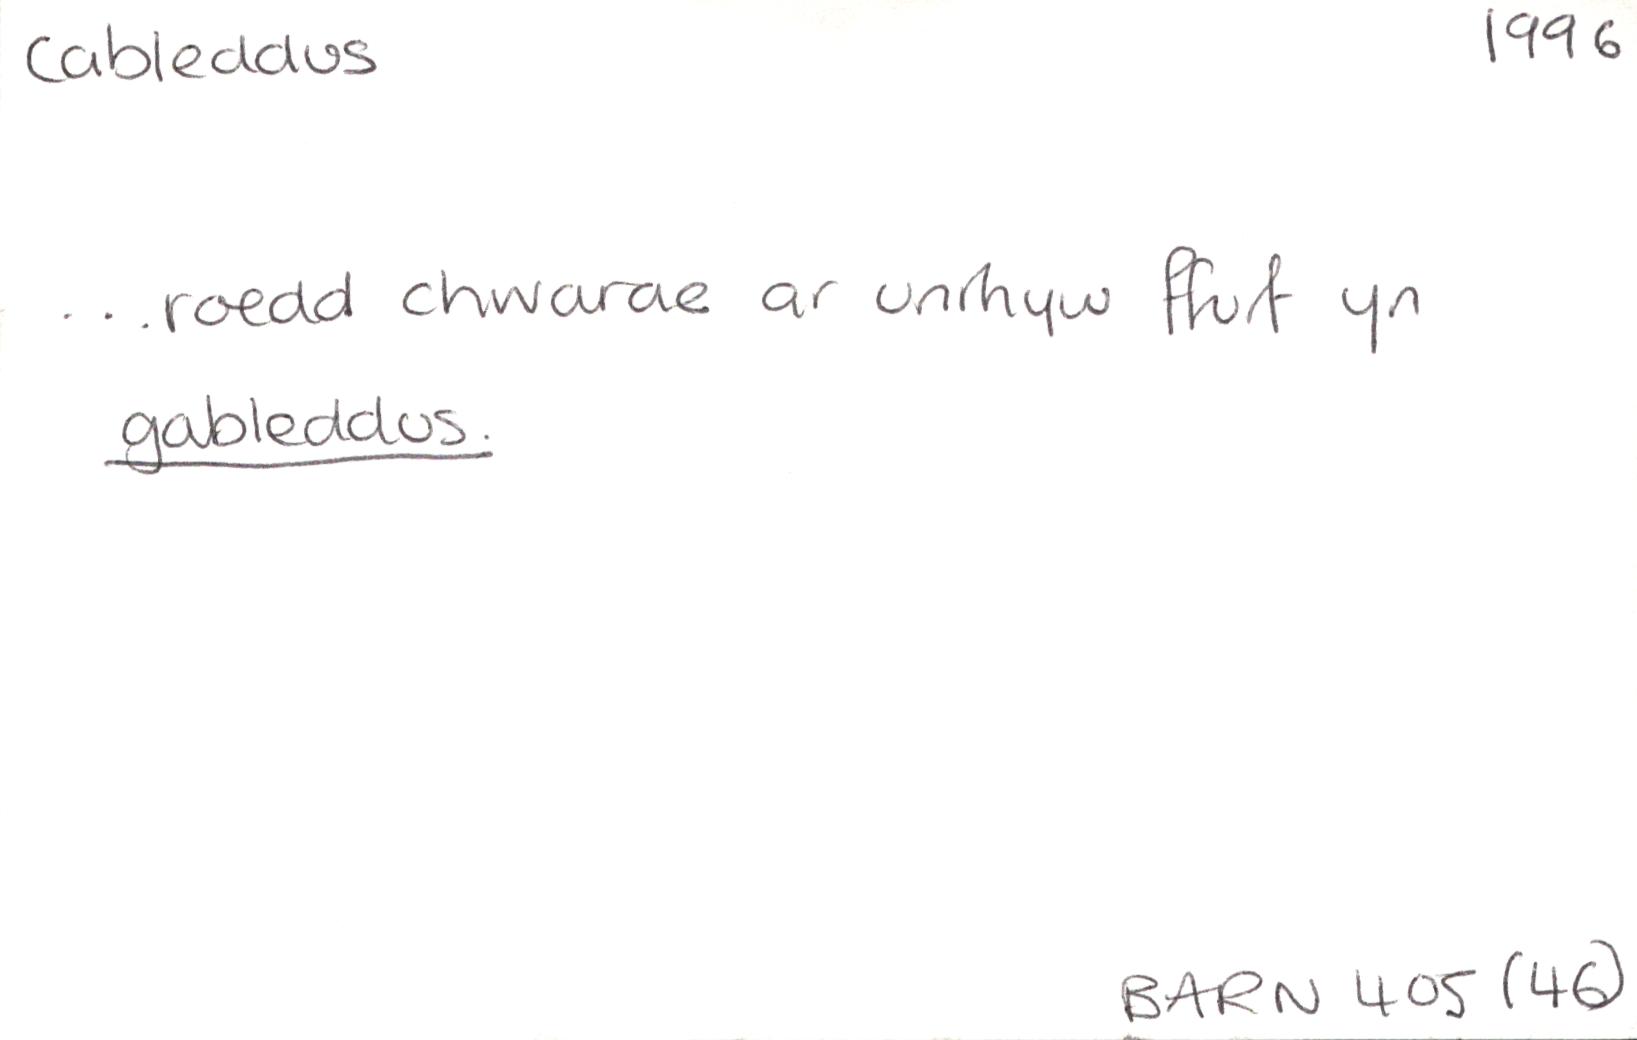 Cableddus
1996
...roedd chwarae ar unrhyw ffurf yn
gableddus.
BARN 405 (46)